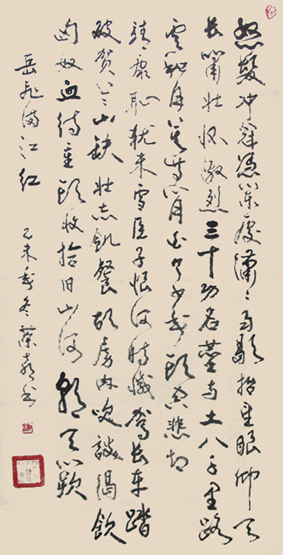 怒髮冲冠憑欄處瀟瀟雨歇抬望眼仰天
長嘯壯懷激烈三十功名塵與土八千里路
雲和月莫等閒白了少年頭空悲切
靖康恥猶未雪臣子恨何時滅駕長車踏
破賀蘭山缺壯志飢餐胡虜肉笑談渴飲
匈奴血待重頭收拾舊山河朝天闕
岳飛滿江紅
乙未年冬榮書